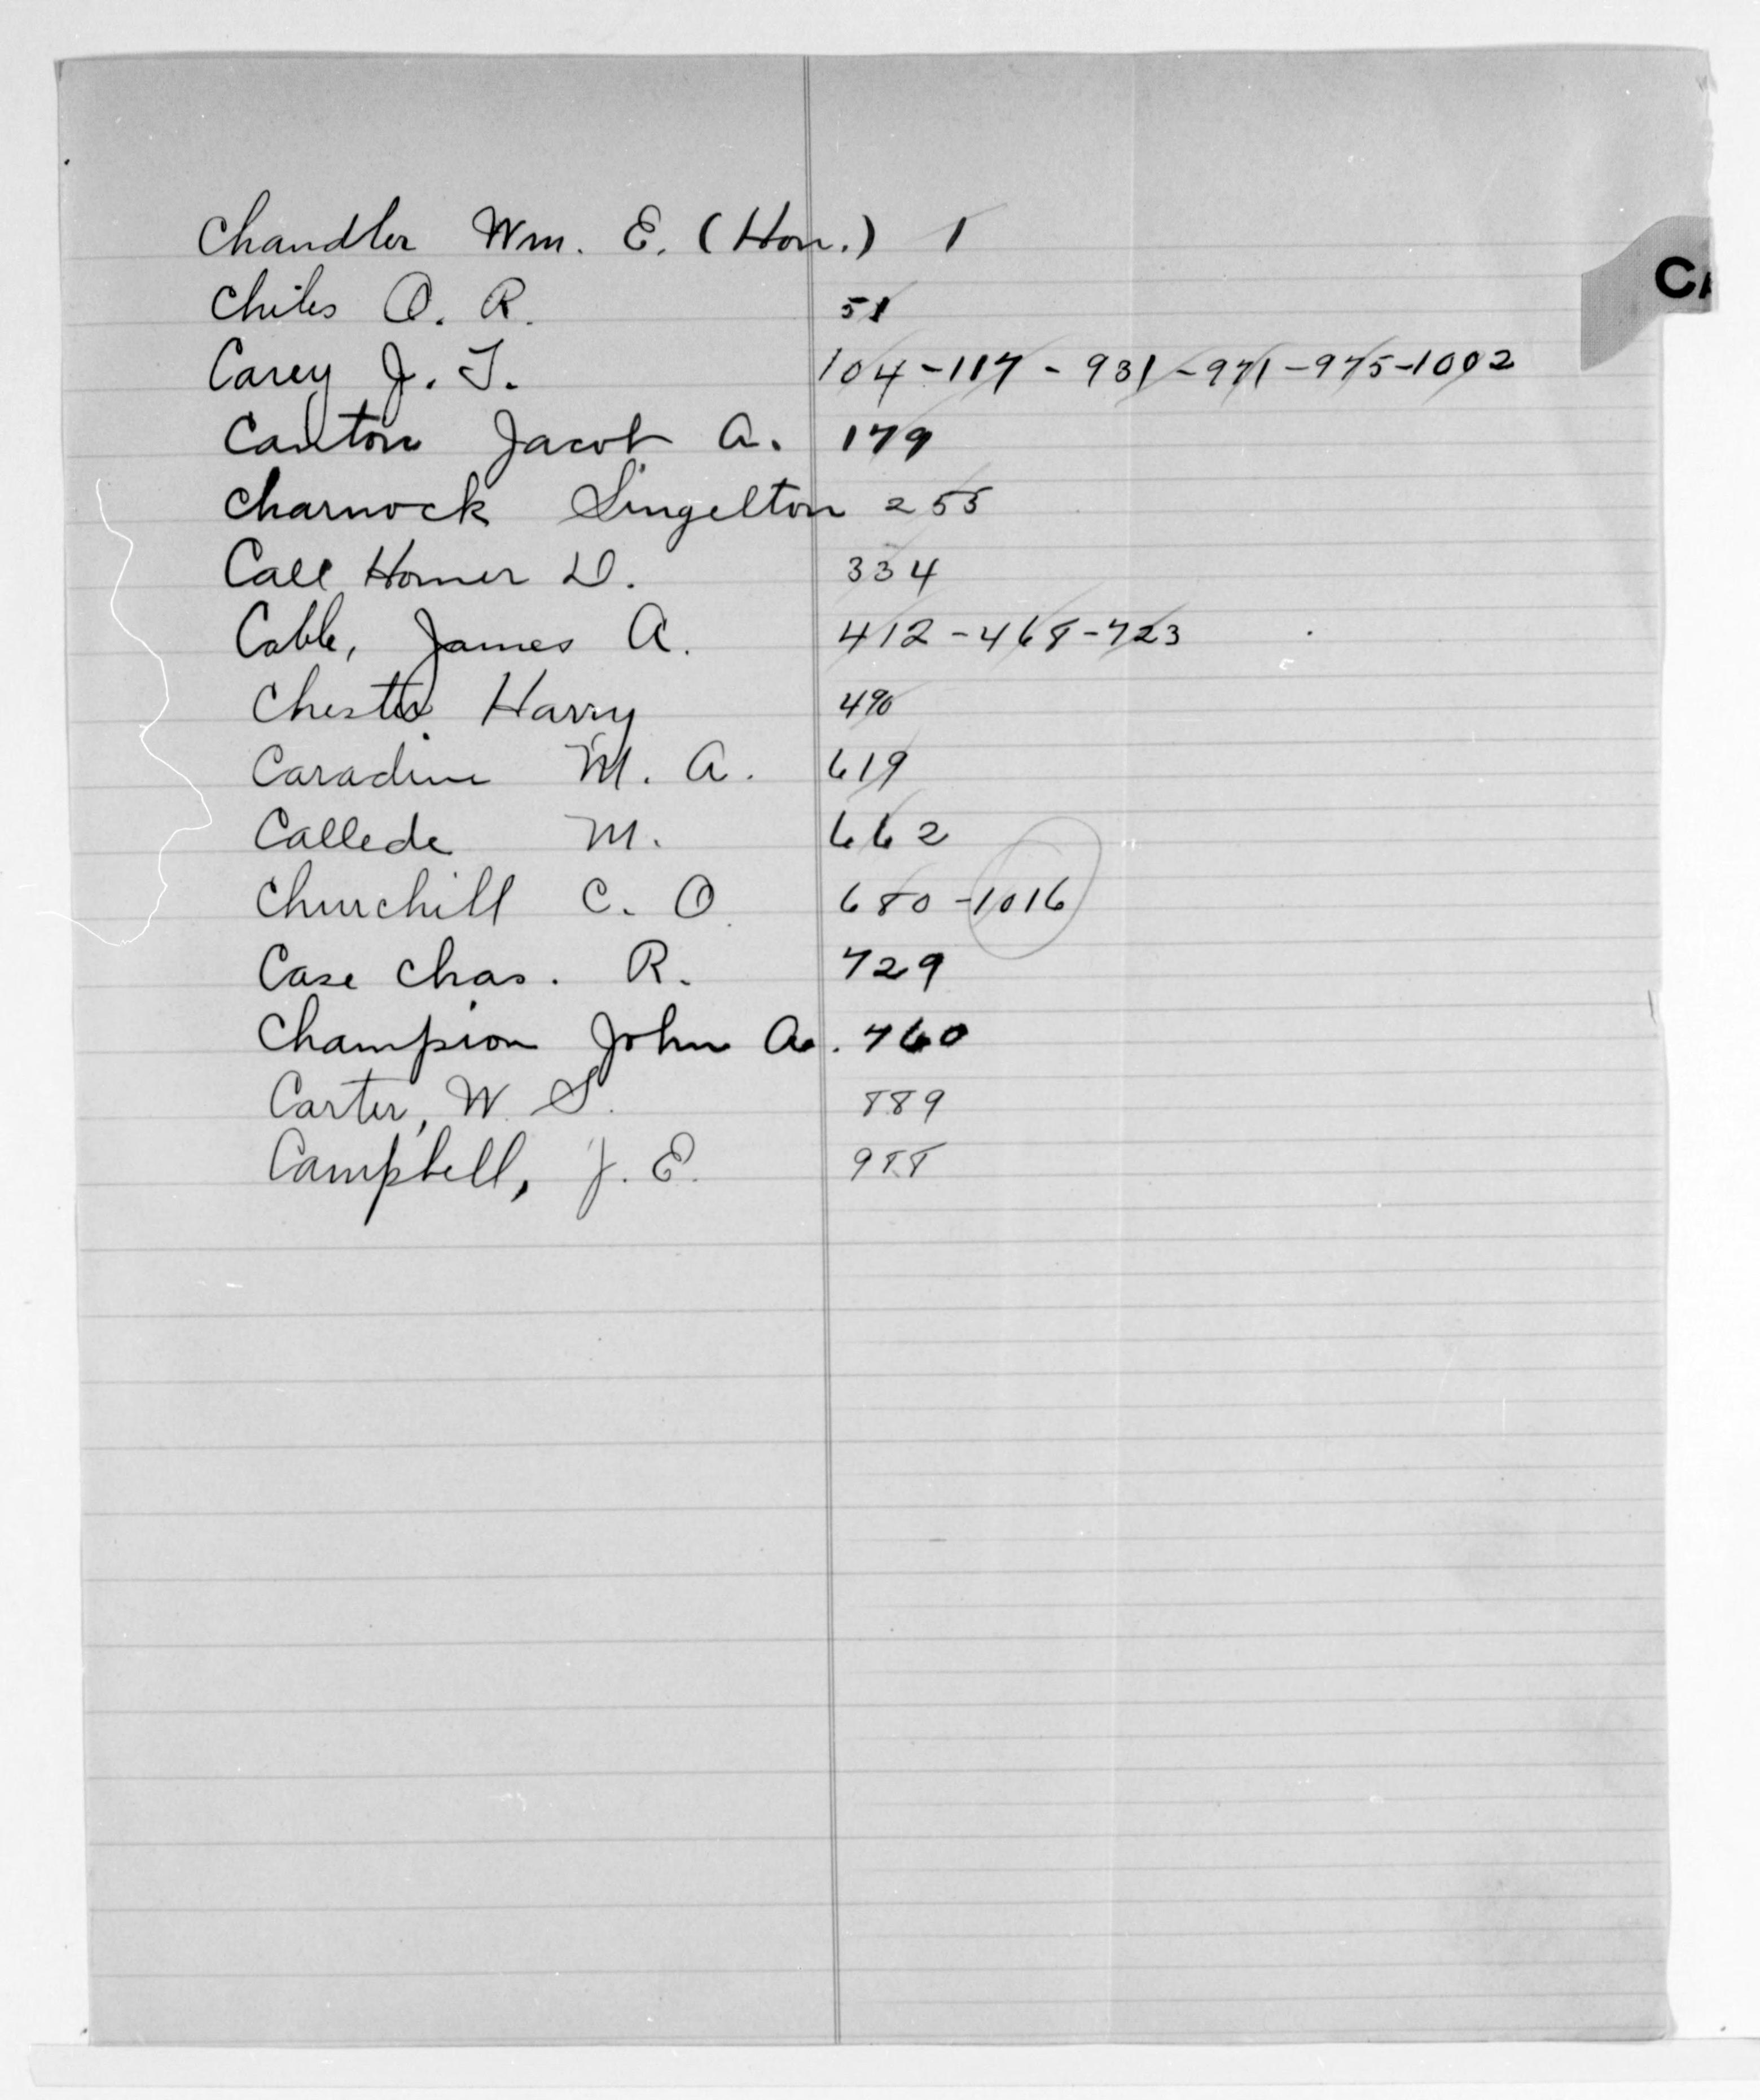 Chandler Wm. E. (Hon.) 1
CA
Chiles O. R. 51
Carey J. T. 104 - 117 - 931 - 971 - 975 - 1002
Canton Jacob A. 179
Charnock Singelton 255
Call Homer D. 334
Cable, James A. 412 - 468 - 723
Chester Harry 490
Caradine M. A. 619
Callede M. 662
Churchill C. O. 680 - 1016
Case Chas. R. 729
Champion John A. 760
Carter, W. S. 889
Campbell, J. E. 988